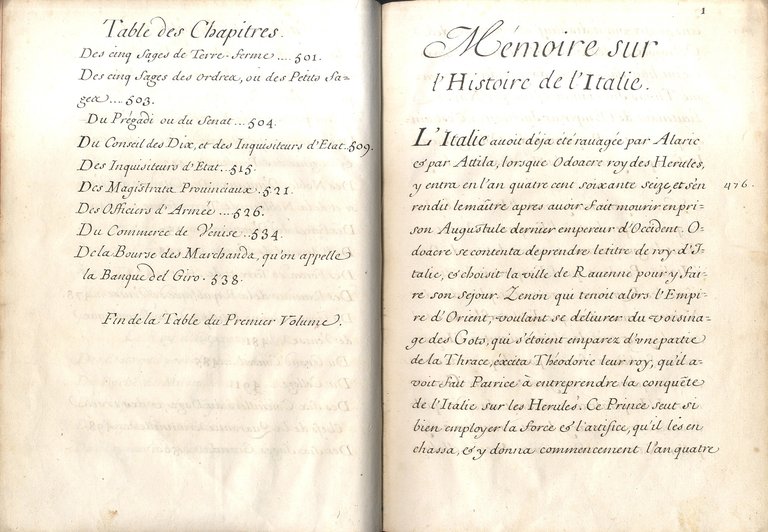 Table des Chapitres.
Des cinq Sages de Terre-ferme .... 501.
Des cinq Sages des ordrex, ou des Petits Sa=
gex .... 503.
Du Prégadi ou du Senat ... 504.
Du Conseil des Dix, et des Inquisiteurs d'Etat. 509.
Des Inquisiteurs d'Etat. 515.
Des Magistrats Prouinciaux. 521.
Des Officiers d'Armée .... 526.
Du Commerce de Venise .. 534.
De la Bourse des Marchands, qu'on appelle
la Banque del Giro. 538.
Fin de la Table du Premier Volume.
1
Mémoire sur
l'Histoire de l'Italie.
L'Italie auoit déja été rauagée par Alaric
& par Attila, lorsque Odoacre roy des Herules,
y entra en l'an quatre cent soixante seize, et s'en
476.
rendit le maître apres auoir fait mourir en pri=
son Augustule dernier empereur d'Occident. O=
doacre se contenta de prendre le titre de roy d'I=
talie, & choisit la ville de Rauenne pour y fai=
re son sejour. Zenon qui tenoit alors l'Empi=
re d'Orient, voulant se déliurer du voisina=
ge des Gots, qui s'étoient emparez d'vne partie
de la Thrace, éxcita Théodoric leur roy, qu'il a=
voit fait Patrice à entreprendre la conquête
de l'Italie sur les Herules. Ce Prince seut si
bien employer la force & l'artifice, qu'il les en
chassa, & y donna commencement l'an quatre